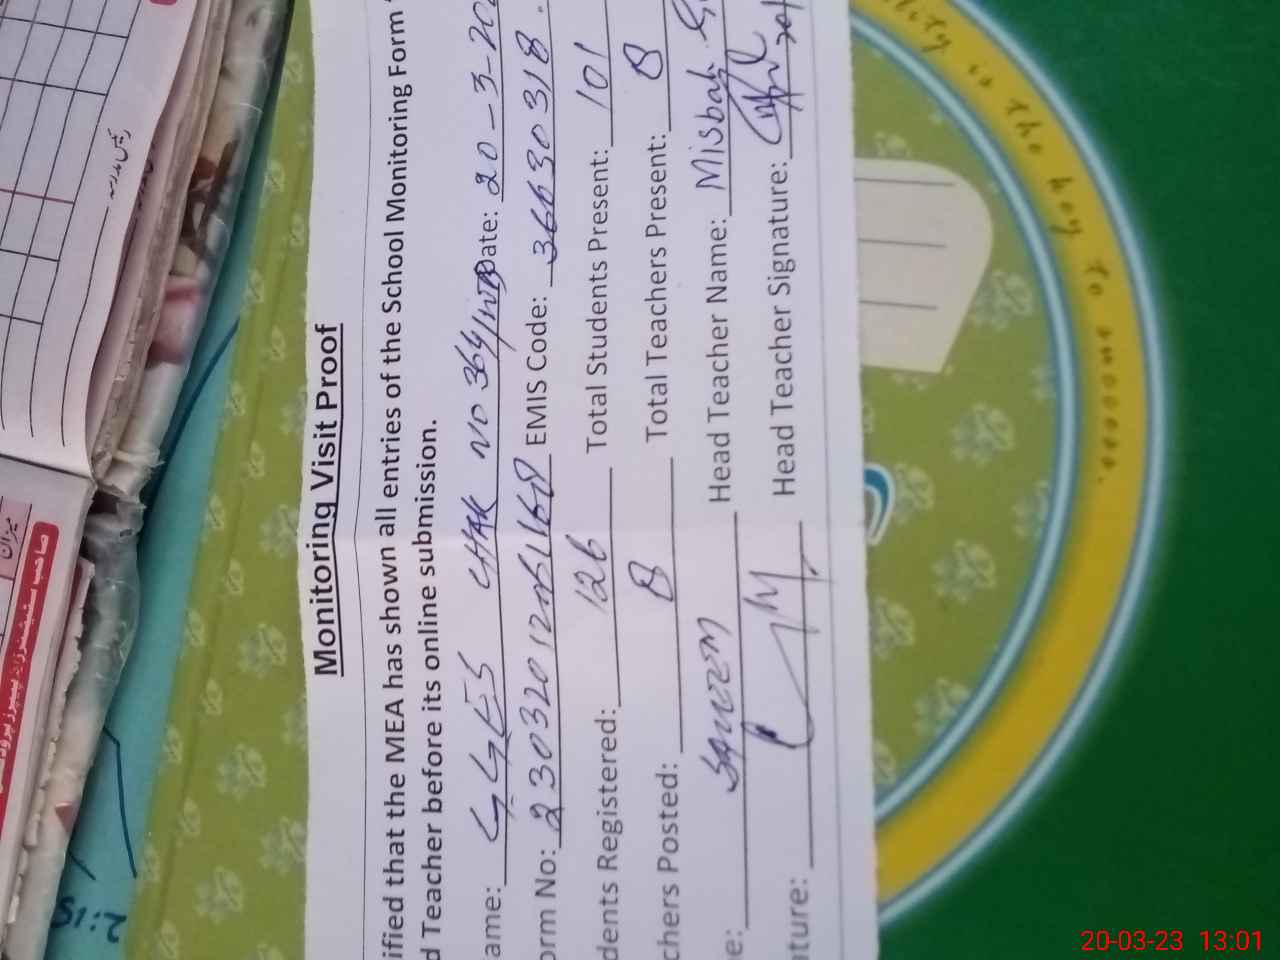 Monitoring Visit Proof
ified that the MEA has shown all entries of the School Monitoring Form
d Teacher before its online submission.
ame: GGES CHAK NO 364/WB Date: 20-3-202
orm No: EMIS Code: 36630318.
dents Registered: 126 Total Students Present: 101
chers Posted: 8 Total Teachers Present: 8
e: Head Teacher Name: Misbah
ature: Head Teacher Signature:
lity is the key to success.
میزان
صاحب سٹیشنرز اینڈ پیپرز پروڈ
2:15
20-03-23 13:01